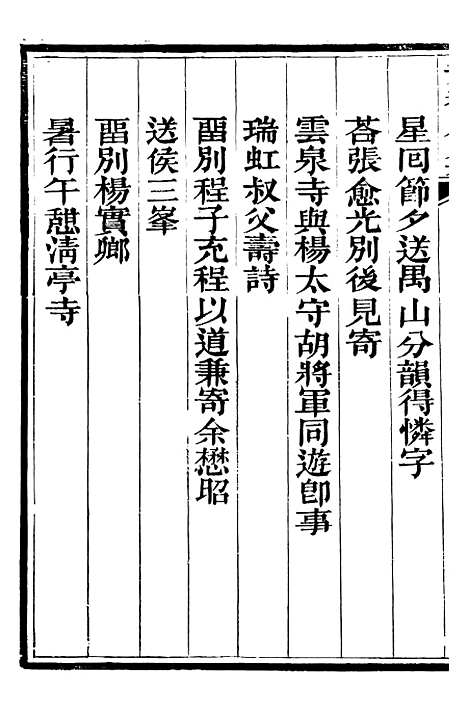 星回節夕送禺山分韻得憐字
荅張愈光別後見寄
雲泉寺與楊太守胡將軍同遊卽事
瑞虹叔父壽詩
畱別程子充程以道兼寄余懋昭
送侯三峯
畱別楊實卿
暑行午憇清亭寺